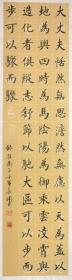 大丈夫恬然無思澹然無慮以天為蓋以
地為輿四時為馬陰陽為御乘雲陵霄與
造化者俱縱志舒節以馳大區可以步而
步可以驟而驟